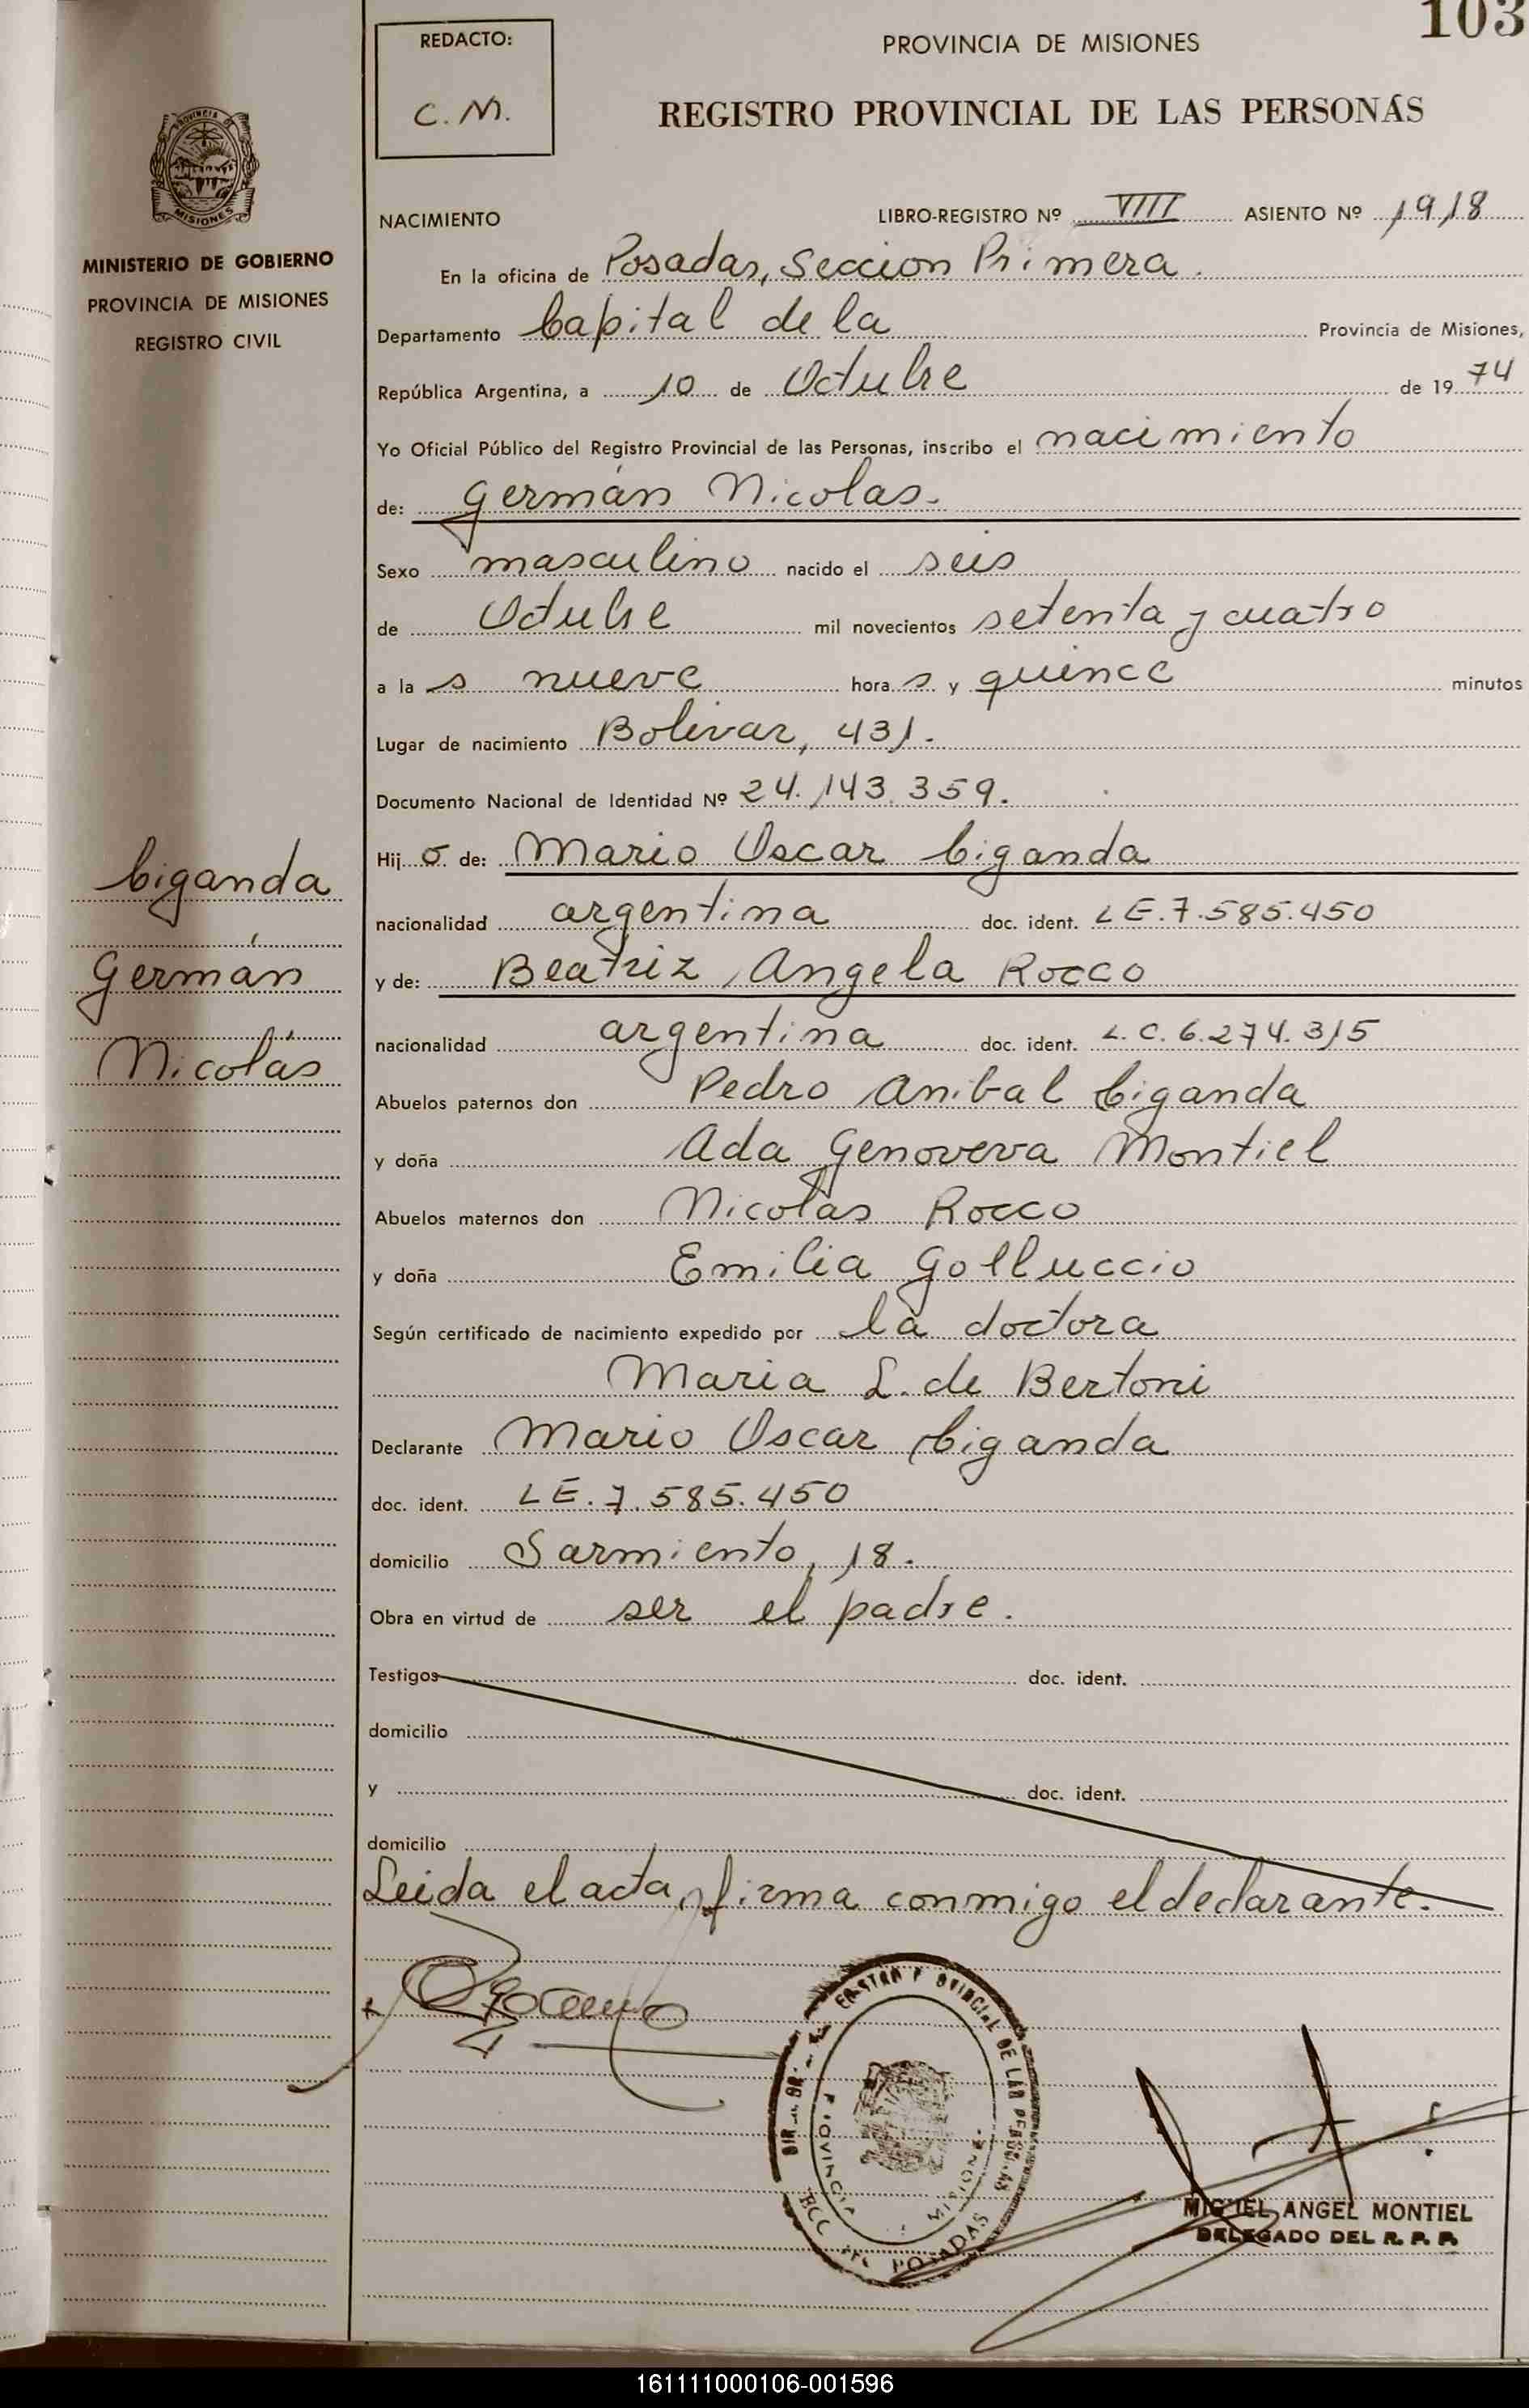 103
REDACTO:
C. M.
PROVINCIA DE MISIONES
REGISTRO PROVINCIAL DE LAS PERSONAS
MISIONES
MINISTERIO DE GOBIERNO
PROVINCIA DE MISIONES
REGISTRO CIVIL
NACIMIENTO LIBRO-REGISTRO Nº VIII ASIENTO Nº 1918
En la oficina de Posadas, Seccion Primera.
Departamento Capital de la Provincia de Misiones,
República Argentina, a 10 de Octubre de 1974
Yo Oficial Público del Registro Provincial de las Personas, inscribo el nacimiento
de: Germán Nicolas.
Sexo masculino nacido el seis
de Octubre mil novecientos setenta y cuatro
a las nueve horas y quince minutos
Lugar de nacimiento Bolivar, 431.
Documento Nacional de Identidad Nº 24.143.359.
Hijo de: Mario Oscar Ciganda
nacionalidad argentina doc. ident. LE. 7.585.450
y de: Beatriz Angela Rocco
nacionalidad argentina doc. ident. L.C. 6.274.315
Abuelos paternos don Pedro Anibal Ciganda
y doña Ada Genoveva Montiel
Abuelos maternos don Nicolas Rocco
y doña Emilia Golluccio
Según certificado de nacimiento expedido por la doctora
Maria L. de Bertoni
Declarante Mario Oscar Ciganda
doc. ident. LE. 7.585.450
domicilio Sarmiento, 18.
Obra en virtud de ser el padre.
Testigos doc. ident.
domicilio
y doc. ident.
domicilio
Leida el acta, firma conmigo el declarante.
Ciganda
Germán
Nicolás
PROVINCIA MISIONES
POSADAS
MIGUEL ANGEL MONTIEL
DELEGADO DEL R. P. P.
161111000106-001596